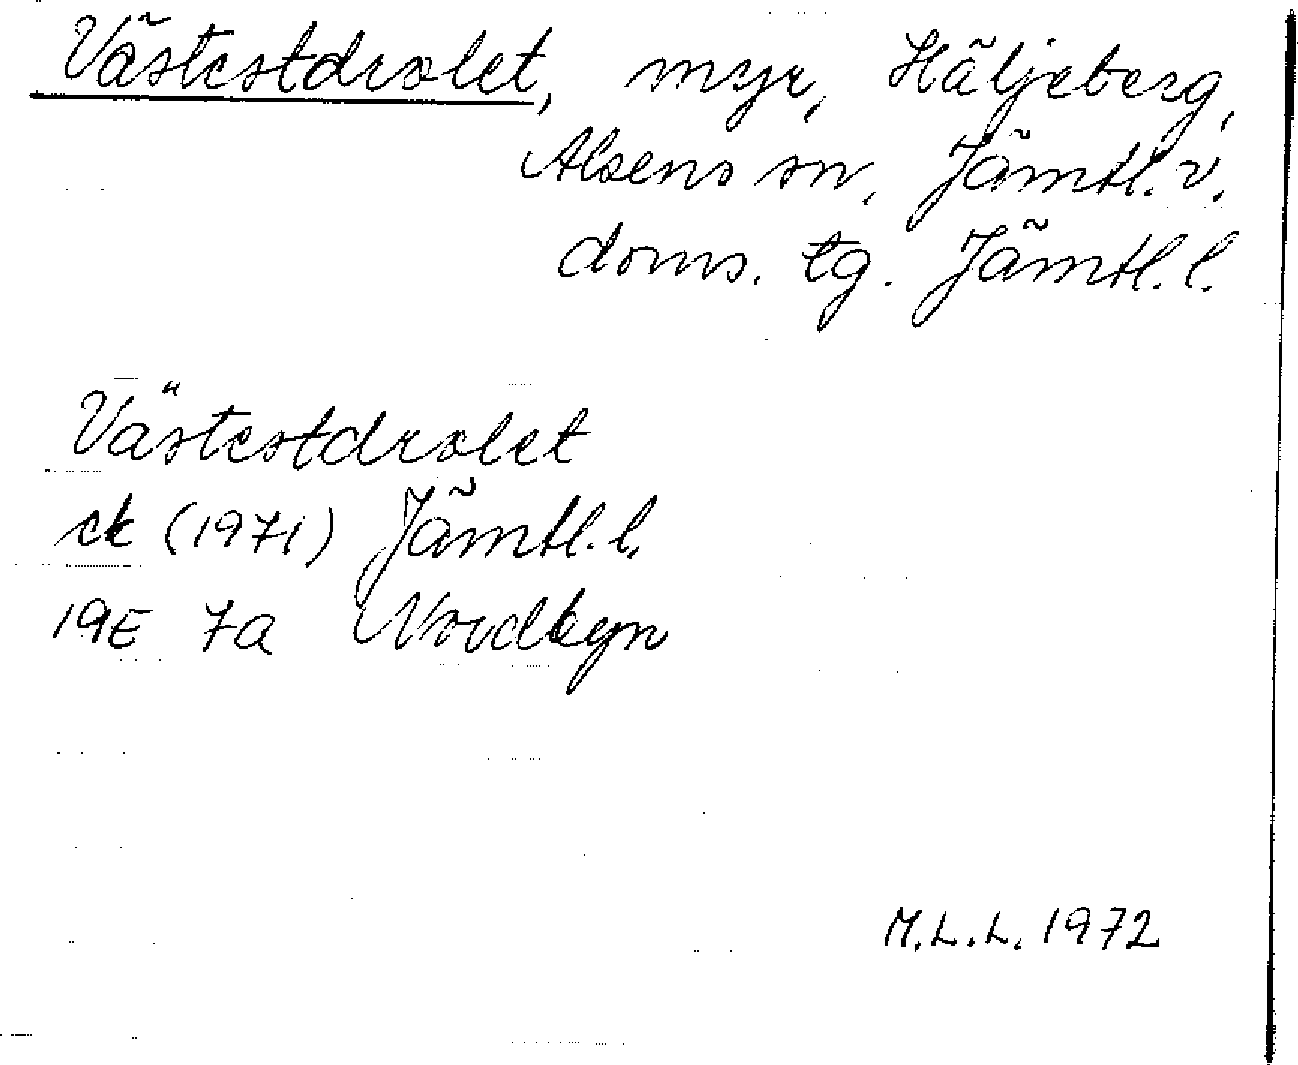 Västestdrolet, myr, Häljeberg,
Alsens sn, Jämtl. v.
doms. tg. Jämtl. l.
Västestdrolet
ek (1971) Jämtl. l.
19E 7a Nordbyn
M.L.L. 1972